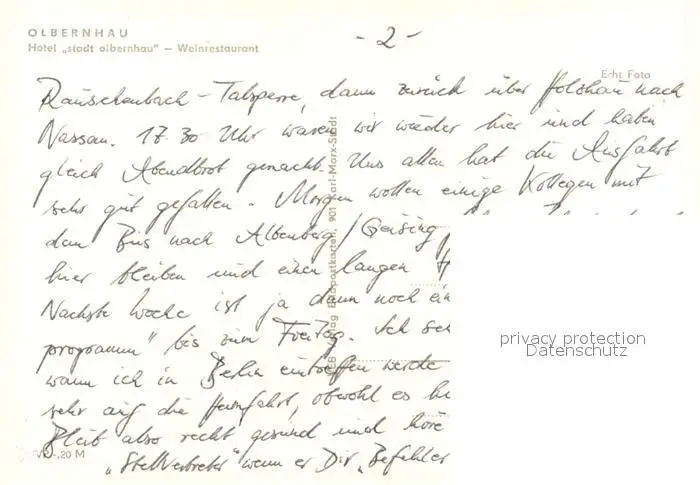 OLBERNHAU
Hotel „stadt olbernhau" – Weinrestaurant
- 2 -
Echt Foto
Rauschenbach-Talsperre, dann zurück über Holzhau nach
Nassau. 17.30 Uhr waren wir wieder hier und haben
gleich Abendbrot gemacht. Uns allen hat die Ausfahrt
sehr gut gefallen. Morgen wollen einige Kollegen mit
dem Bus nach Altenberg/Geising
hier bleiben und einen langen
Nächste Woche ist ja dann noch ein
programm" bis zum Freitag. Ich
wann ich in Berlin eintreffen werde
sehr auf die Heimfahrt, obwohl es
Bleib also recht gesund und höre
„Stellvertreter" wenn er Dir „Befehle
Bild-Postkarten, 901 Karl-Marx-Stadt
-,20 M
privacy protection
Datenschutz